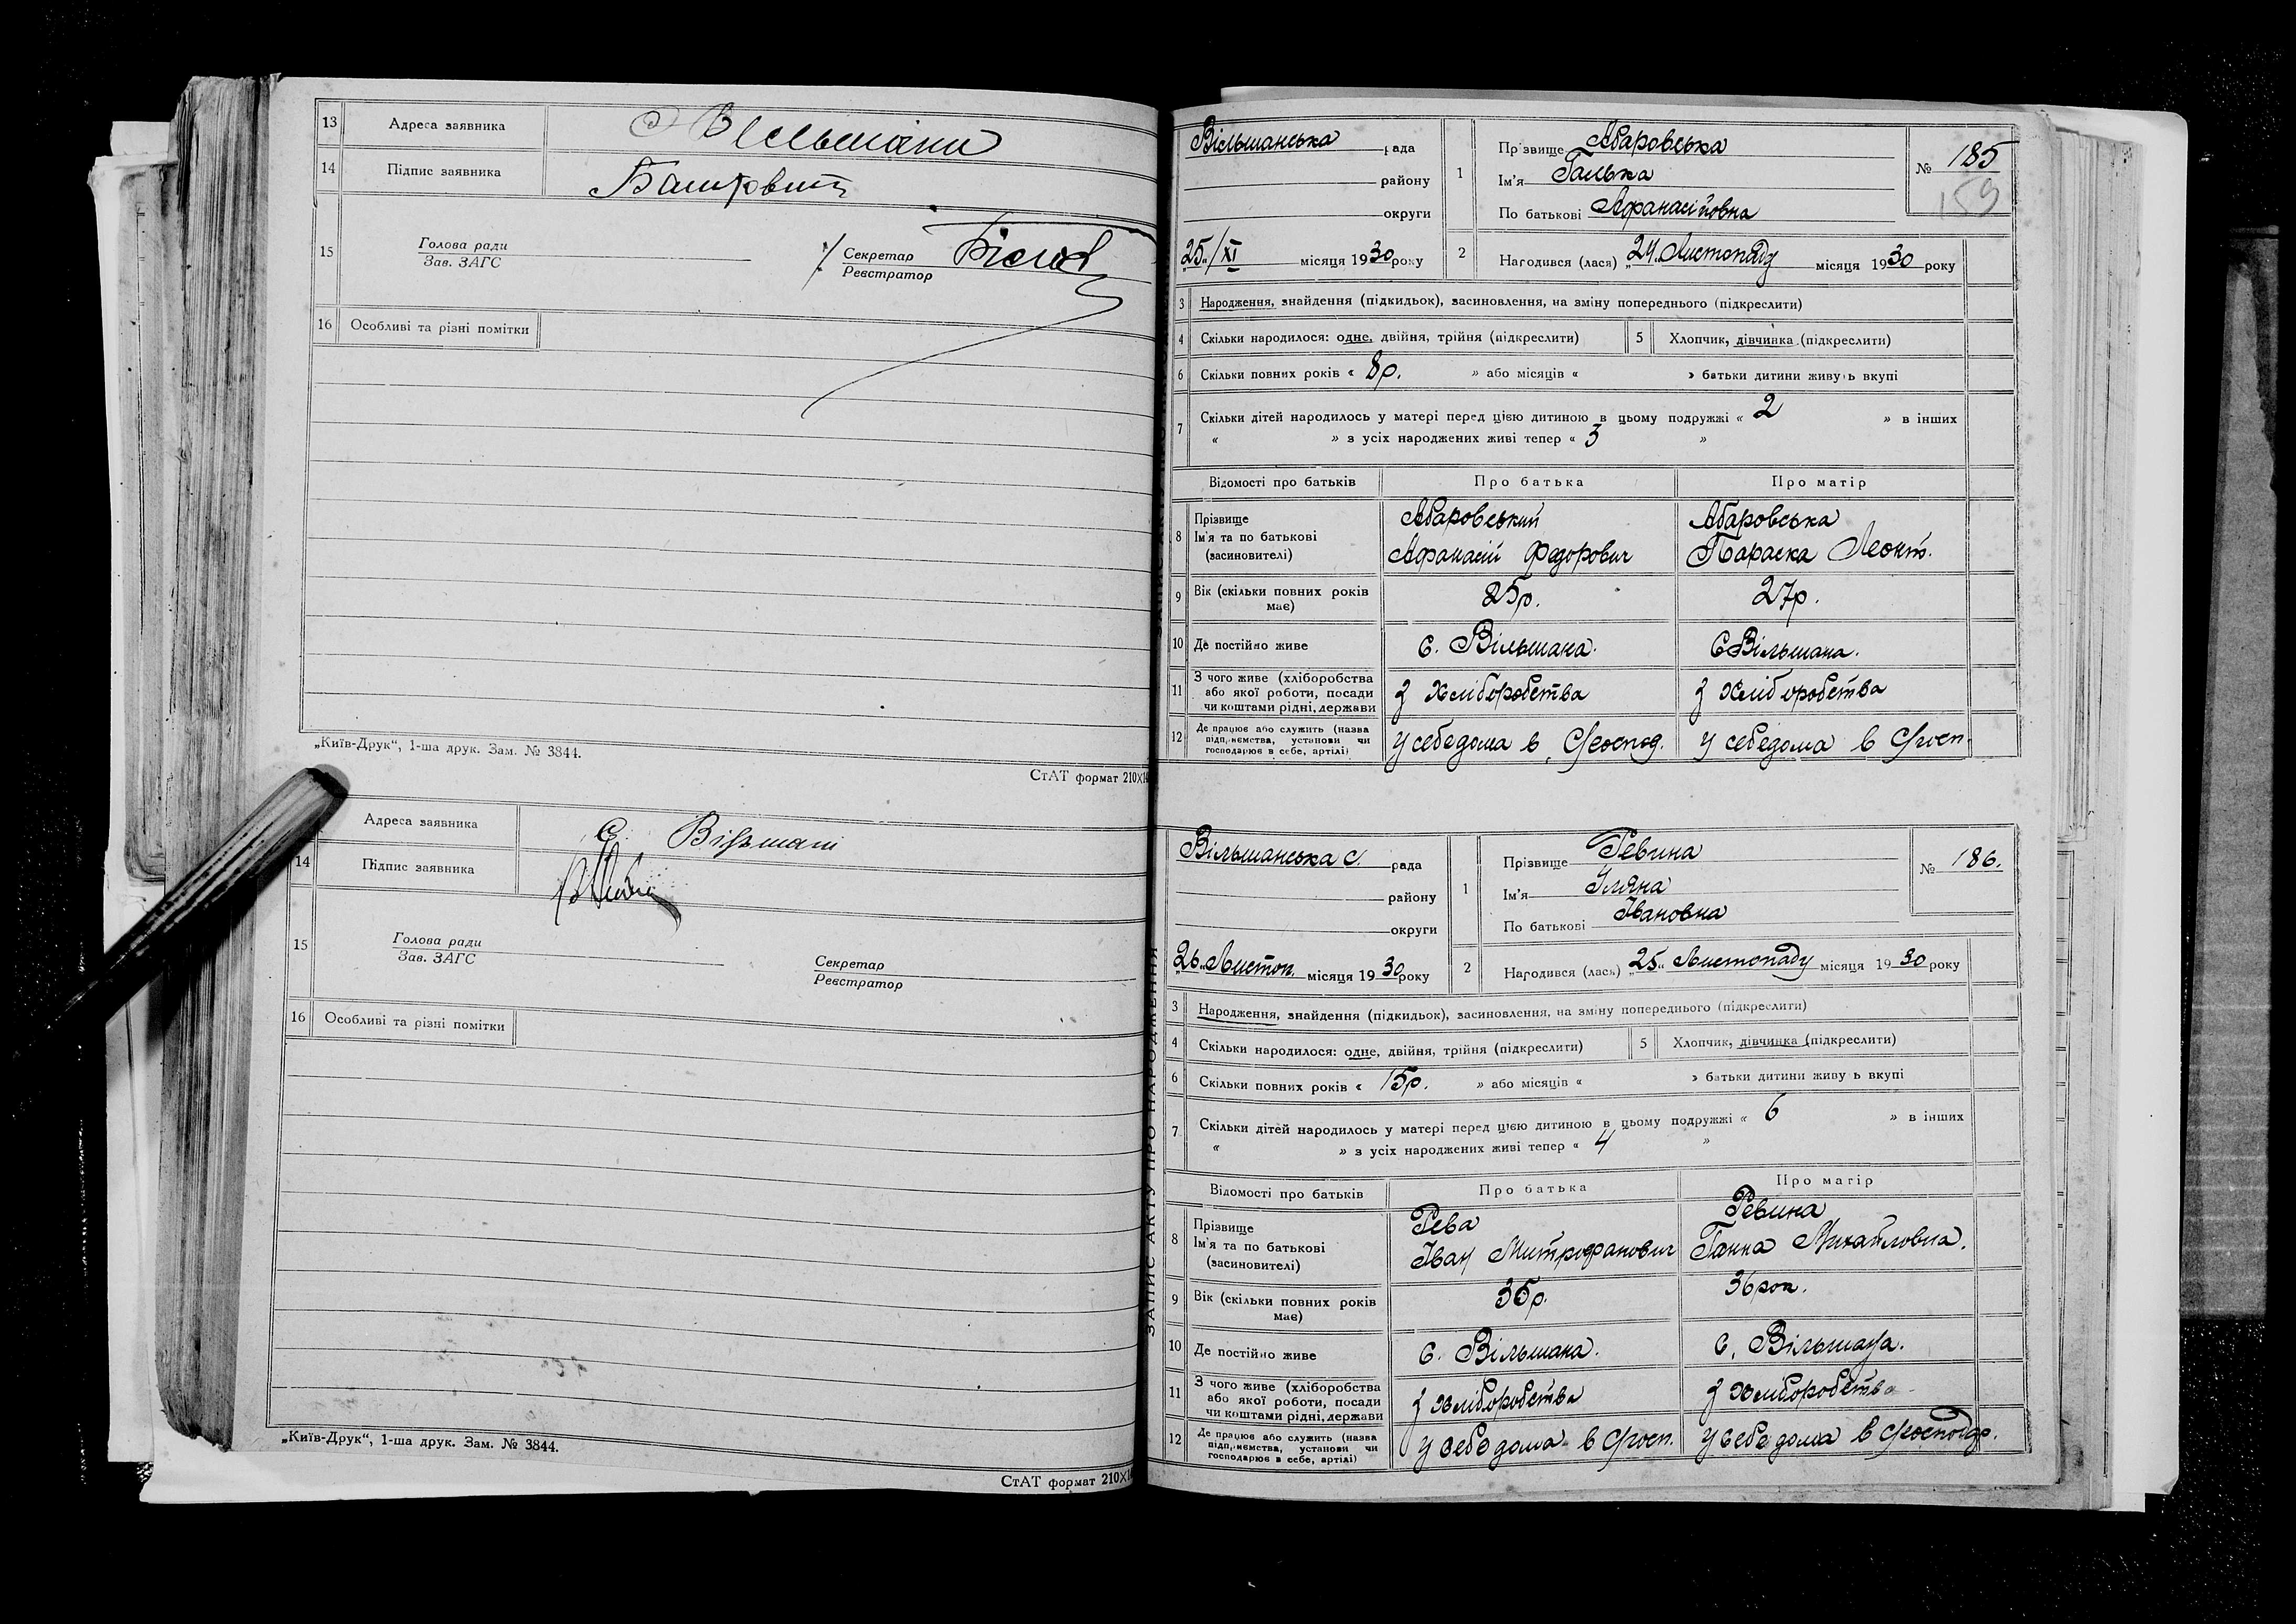 13 Адреса заявника С Вільшани
14 Підпис заявника
15 Голова ради
Зав. ЗАГС
Секретар
Реєстратор
16 Особливі та різні помітки
„Київ-Друк“, 1-ша друк. Зам. № 3844.
СтАТ формат 210×14
Адреса заявника С. Вільшани
14 Підпис заявника
15 Голова ради
Зав. ЗАГС
Секретар
Реєстратор
16 Особливі та різні помітки
„Київ-Друк“, 1-ша друк. Зам. № 3844.
СтАТ формат 210×14
ЗАПИС АКТУ ПРО НАРОДЖЕННЯ
Вільшанська рада
району
округи
25/XI місяця 1930 року
1 Прізвище Абаровська
Ім'я Галька
По батькові Афанасіївна
№ 185
159
2 Народився (лася) „24“ Листопаду місяця 1930 року
3 Народження, знайдення (підкидьок), засиновлення, на зміну попереднього (підкреслити)
4 Скільки народилося: одне, двійня, трійня (підкреслити) 5 Хлопчик, дівчинка (підкреслити)
6 Скільки повних років « 8р. » або місяців « » батьки дитини живуть вкупі
7 Скільки дітей народилось у матері перед цією дитиною в цьому подружжі « 2 » в інших
« » з усіх народжених живі тепер « 3 »
Відомості про батьків Про батька Про матір
8 Прізвище Абаровський Абаровська
Ім'я та по батькові
(засиновителі) Афанасій Федорович Параска Леонт.
9 Вік (скільки повних років
має) 25р. 27р.
10 Де постійно живе С. Вільшана. С Вільшана.
11 З чого живе (хліборобства
або якої роботи, посади
чи коштами рідні, держави З Хліборобства З Хліборобства
12 Де працює або служить (назва
підприємства, установи чи
господарює в себе, артілі) У себе дома в Господ. У себе дома в Госп.
Вільшанська с. рада
району
округи
„26“ Листоп. місяця 1930 року
1 Прізвище Ревина
Ім'я Уляна
По батькові Івановна
№ 186.
2 Народився (лася) „25“ Листопаду місяця 1930 року
3 Народження, знайдення (підкидьок), засиновлення, на зміну попереднього (підкреслити)
4 Скільки народилося: одне, двійня, трійня (підкреслити) 5 Хлопчик, дівчинка (підкреслити)
6 Скільки повних років « 15р. » або місяців « » батьки дитини живуть вкупі
7 Скільки дітей народилось у матері перед цією дитиною в цьому подружжі « 6 » в інших
« » з усіх народжених живі тепер « 4 »
Відомості про батьків Про батька Про матір
8 Прізвище Рева Ревина
Ім'я та по батькові
(засиновителі) Іван Митрофанович Ганна Михайловна.
9 Вік (скільки повних років
має) 35р. 36 рок.
10 Де постійно живе С. Вільшана. С. Вільшана.
11 З чого живе (хліборобства
або якої роботи, посади
чи коштами рідні, держави З Хліборобства З Хліборобства
12 Де працює або служить (назва
підприємства, установи чи
господарює в себе, артілі) У себе дома в Госп. У себе дома в Господр.